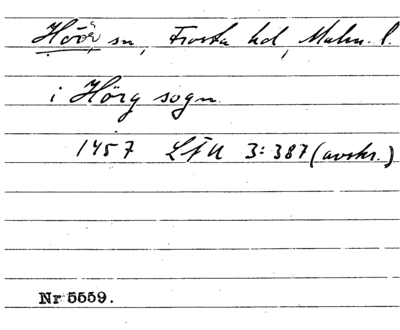 Höör sn, Frosta hd, Malm. l.
i Hörg sogn.
1457 LÄU 3:387 (avskr.)
Nr 5559.